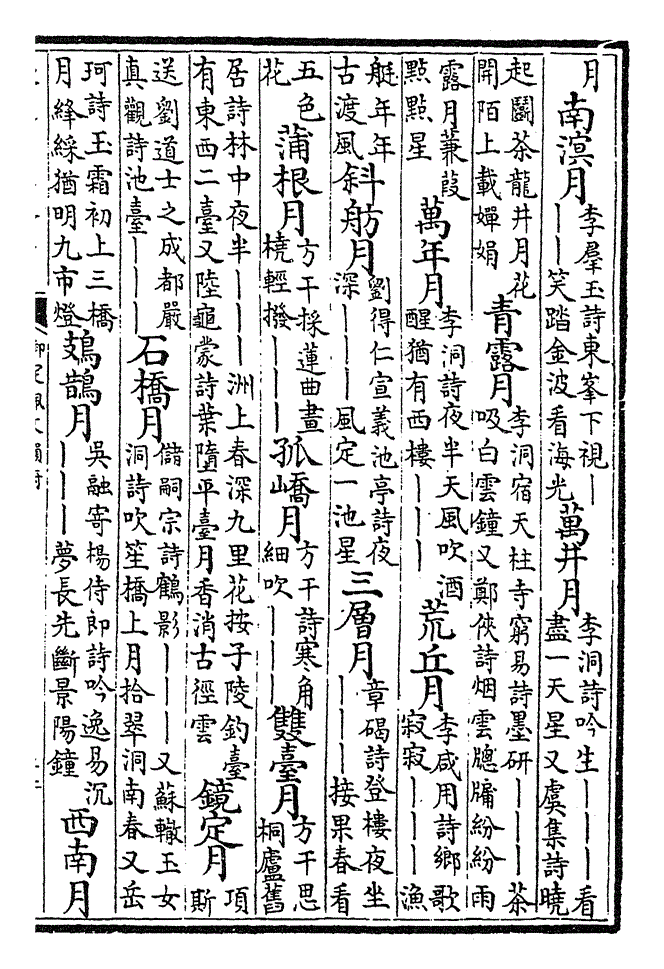 月南溟月李羣玉詩東峯下視一一一笑踏金波看海光萬井月李洞詩吟生一一一看盡一天星又虞集詩曉
起鬬茶龍井月花開陌上載嬋娟青露月李洞宿天柱寺窮易詩墨研一一一茶吸白雲鐘又鄭俠詩烟雲牕牖紛紛雨
露月蒹葭點點星萬年月李洞詩夜半天風吹酒醒猶有西樓一一一荒丘月李咸用詩鄉歌寂寂一一一漁
艇年年古渡風斜舫月劉得仁宣義池亭詩夜深一一一風定一池星三層月章碣詩登樓夜坐一一一接果春看
五色花蒲根月方干採蓮曲畫橈輕撥一一一孤嶠月方干詩寒角細吹一一一雙臺月方干思桐廬舊
居詩林中夜半一一一洲上春深九里花按子陵釣臺有東西二臺又陸龜蒙詩葉墮平臺月香消古徑雲鏡定月項斯
送劉道士之成都嚴真觀詩池臺一一一石橋月儲嗣宗詩鶴影一一一又蘇轍玉女洞詩吹笙橋上月拾翠洞南春又岳
珂詩玉霜初上三橋月絳綵猶明九市燈鳷鵲月吳融寄楊侍郎詩吟逸易沉一一一夢長先斷景陽鐘西南月